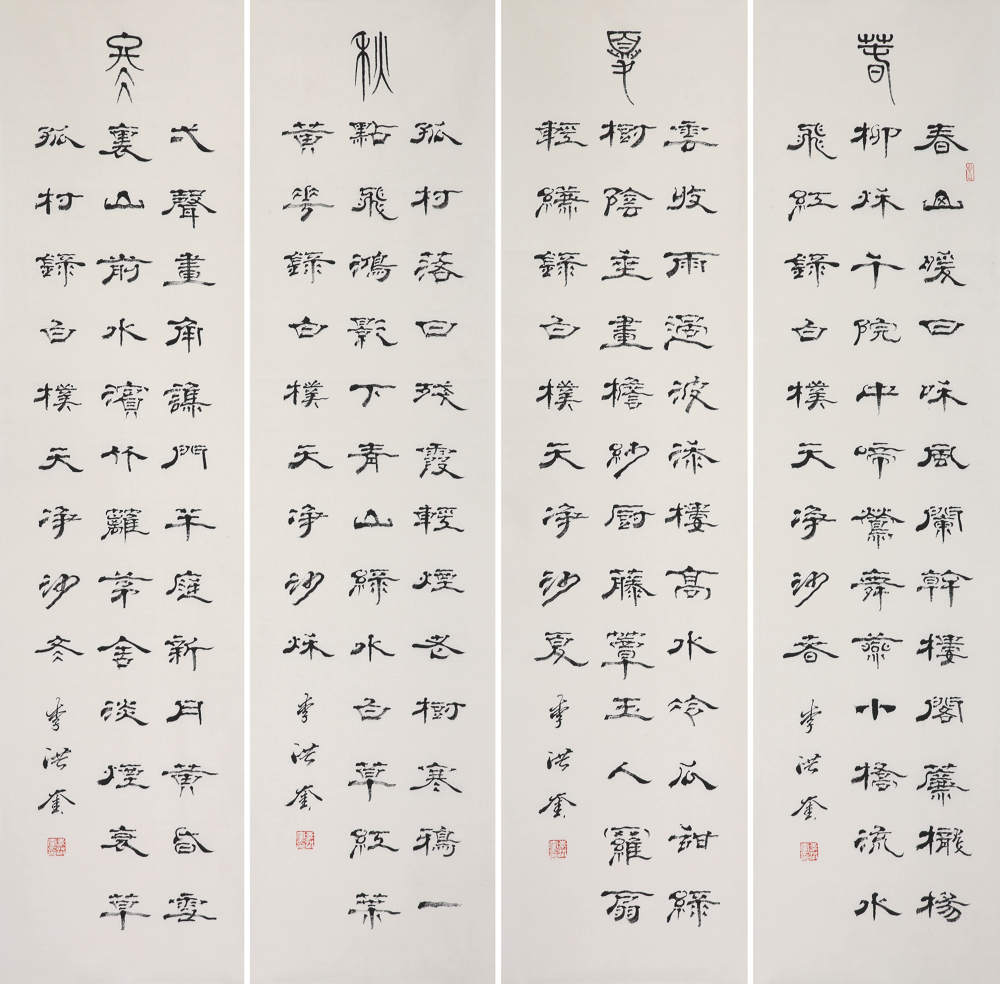 春
春山暖日咊風闌幹樓閣簾櫳楊
柳秌千院中啼鶯舞燕小橋流水
飛紅錄白樸天淨沙春 李洪奎
夏
雲收雨過波添樓高水冷瓜甜綠
樹陰垂畫檐紗厨藤簟玉人羅扇
輕縑錄白樸天淨沙夏 李洪奎
秋
孤村落日殘霞輕煙老樹寒鴉一
點飛鴻影下青山綠水白草紅葉
黃花錄白樸天淨沙秌 李洪奎
冬
弌聲畫角譙門半庭新月黃昏雪
裏山前水濱竹籬茅舍淡煙衰草
孤村錄白樸天淨沙冬 李洪奎